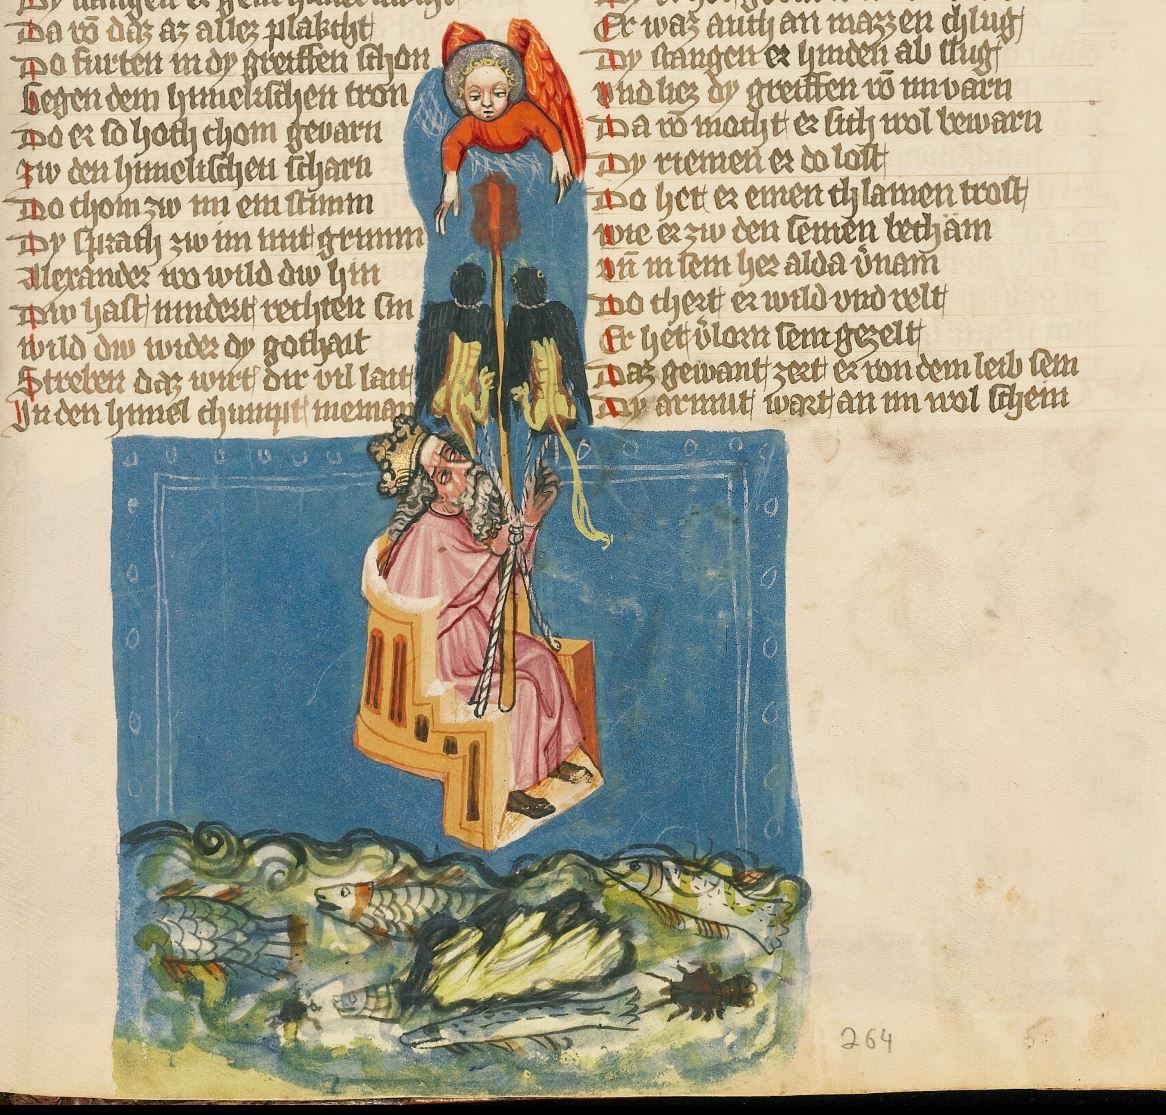 Da vō daz az allez plakcht
Do furten in dy greiffen schon
Gegen dem himelischen tron
Do er so hoch chom gevarn
Zw den himelischen scharn
Do chom zw im ein stimm
Dy sprach zw im mit grimm
Alexander wo wild dw hin
Dw hast nindert rechten sin
Wild dw wider dy gothait
Streben daz wirt dir vil lait
In den himel chumpt nieman
Er waz auch an mazzen chlug
Dy stangen er hinden ab slug
Vnd liez dy greiffen vō im varn
Da vō mocht er sich wol bewarn
Dy riemen er do lost
Do het er einen chlainen trost
Wie er zw den seinen bechäm
Vn̄ in sein her alda v̊nam
Do chert er wild vnd velt
Er het v̊lorn sein gezelt
Daz gewant zert er von dem leib sein
Dy armut wart an im wol schein
264